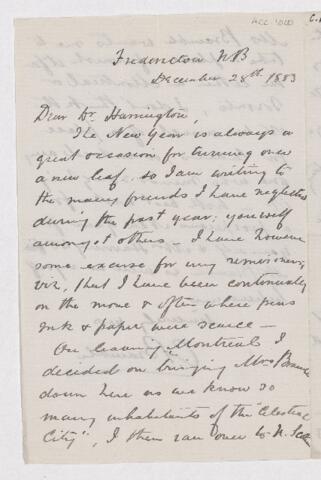 ACC 1060
Fredericton NB
December 28th 1883
Dear Dr. Harrington,
The New Year is always a
great occasion for turning over
a new leaf, so I am writing to
the many friends I have neglected
during the past year; yourself
amongst others — I have however
some excuse for my remissness,
viz, that I have been continually
on the move & often where pens
ink & paper were scarce —
On leaving Montreal I
decided on bringing Mrs
down here as we know so
many inhabitants of the "Celestial
City", I then ran over to N. Scotia